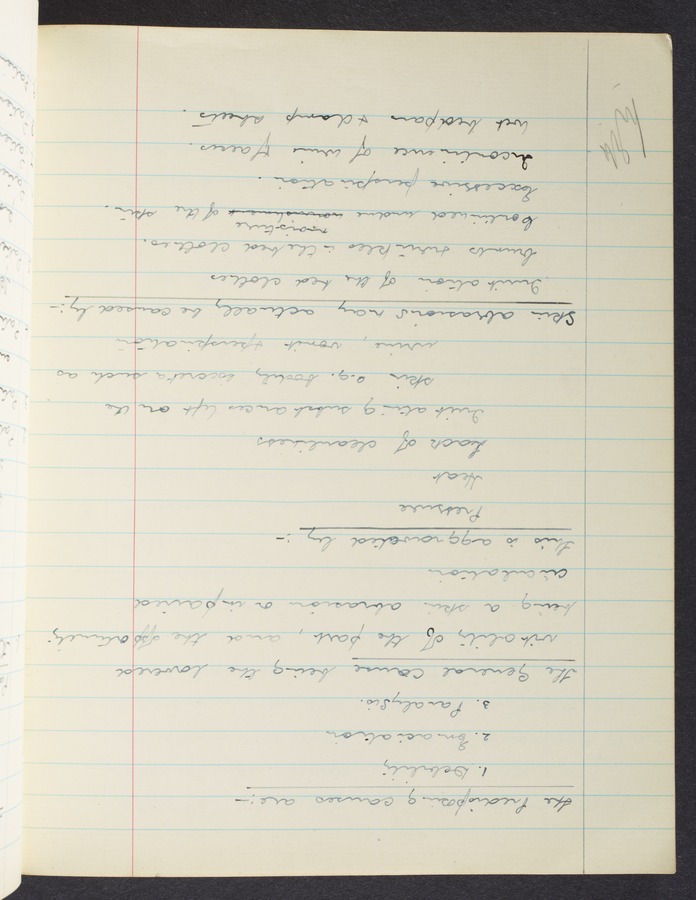 the Predisposing causes are:-
1. Debility
2. Emaciation
3. Paralysis.
the General Cause being the lowered
vitality of the part, and the opportunity
being a skin abrasion or impaired
circulation
this is aggravated by :-
Pressure
Heat
Lack of cleanliness
Irritating substances left on the
skin e.g. bodily excreta such as
urine, vomit & perspiration
Skin abrasions may actually be caused by:-
Irritation of the bed clothes
Crumbs & wrinkles in the bed clothes.
moisture
Continued undue nourishment of the skin.
Excessive perspiration.
Incontinence of urine & faeces.
Wet bedpans & damp sheets.